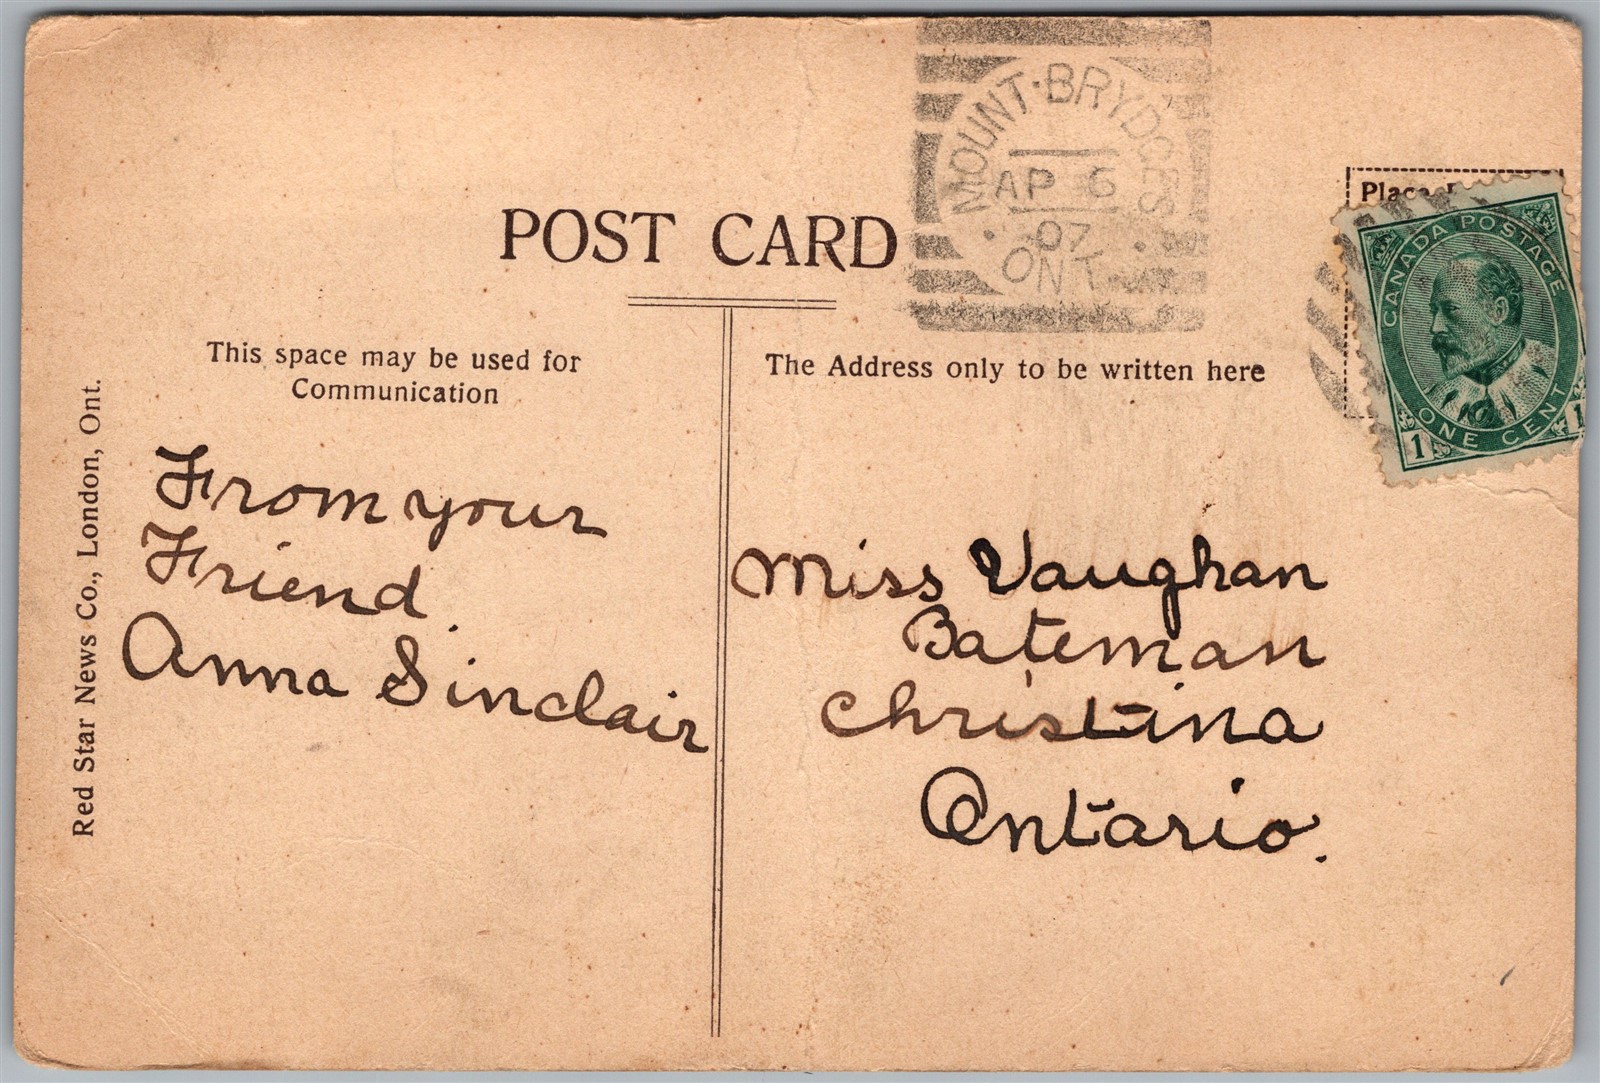 MOUNT·BRYDGES
AP 6
07
ONT
POST CARD
Place
CANADA POSTAGE
ONE CENT
1 1
This space may be used for
Communication
The Address only to be written here
From your
Friend
Anna Sinclair
Miss Vaughan
Bateman
Christina
Ontario.
Red Star News Co., London, Ont.